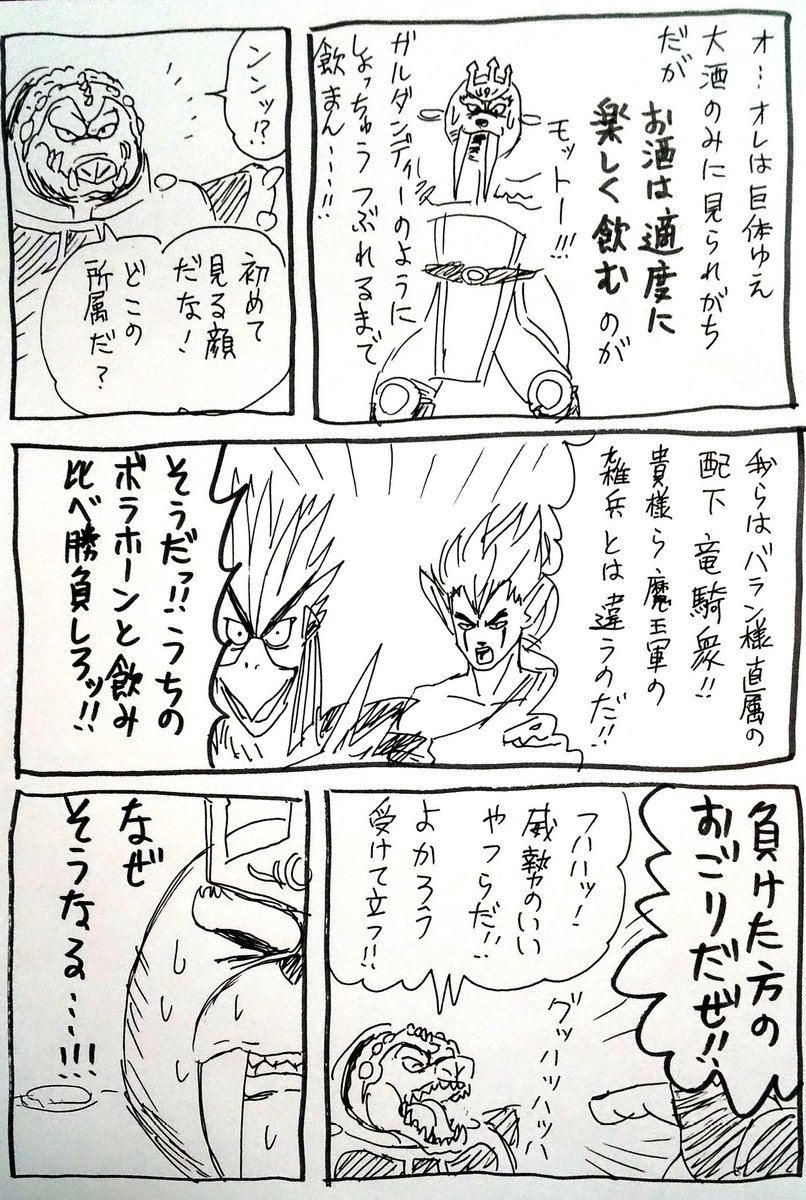 オ…オレは巨体ゆえ
大酒のみに見られがち
だが
お酒は適度に
楽しく飲むのが
モットー!!!
ガルダンディーのように
しょっちゅうつぶれるまで
飲まん……!!
ンンッ!?
初めて
見る顔
だな!
どこの
所属だ?
我らはバラン様直属の
配下 竜騎衆!!
貴様ら魔王軍の
雑兵とは違うのだ!!
そうだっ!!うちの
ボラホーンと飲み
比べ勝負しろッ!!
負けた方の
おごりだぜ!!
フハハッ!
威勢のいい
やつらだ!!
よかろう
受けて立つ!!
グッハッハッハッ
なぜ
そうなる…!!!